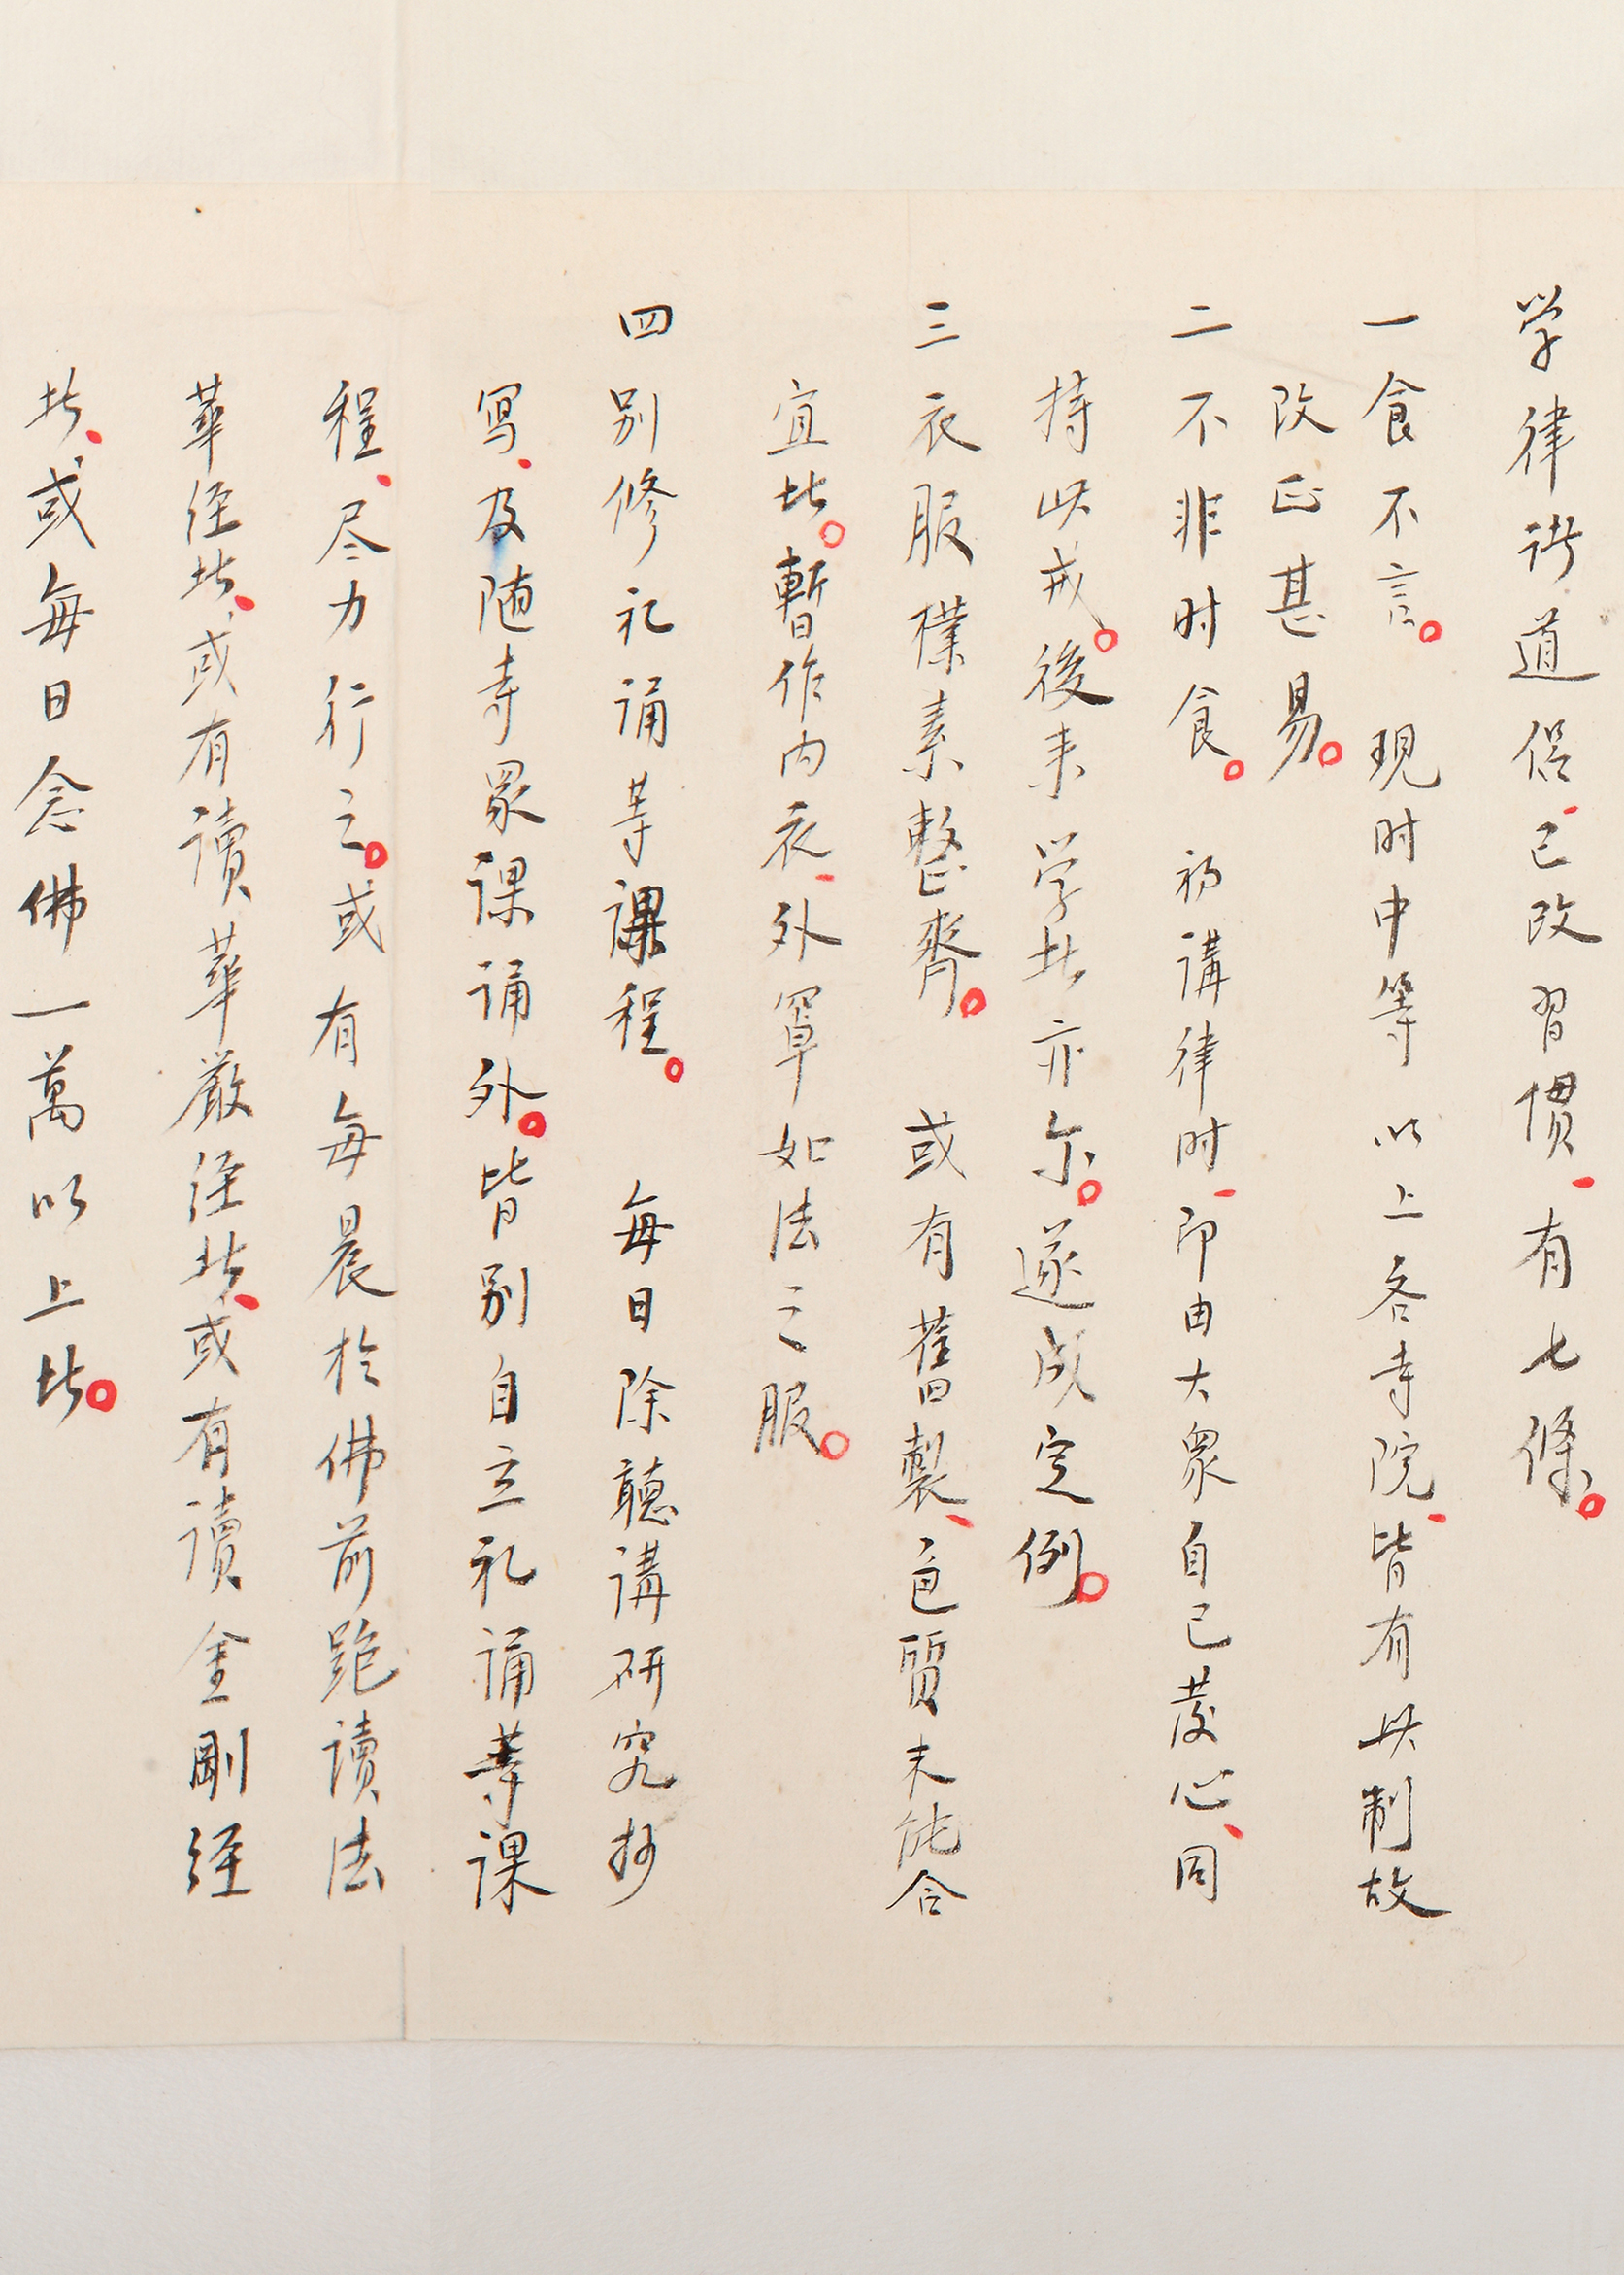 学律诸道侣、已改習惯、有七條。
一食不言。 現时中等 以上各寺院、皆有此制故
改正甚易。
二不非时食。 初講律时、即由大眾自己发心、同
持此戒。後来学者亦尔。遂成定例。
三衣服僕素整齊。 或有舊製、色質未能合
宜者。暫作内衣、外罩如法之服。
四别修礼诵等課程。 每日除聽講研究抄
写、及随寺眾课诵外。皆别自立礼诵等课
程、尽力行之。或有每晨於佛前跪讀法
華经者、或有讀華嚴经者、或有讀金剛经
者、或每日念佛一萬以上者。